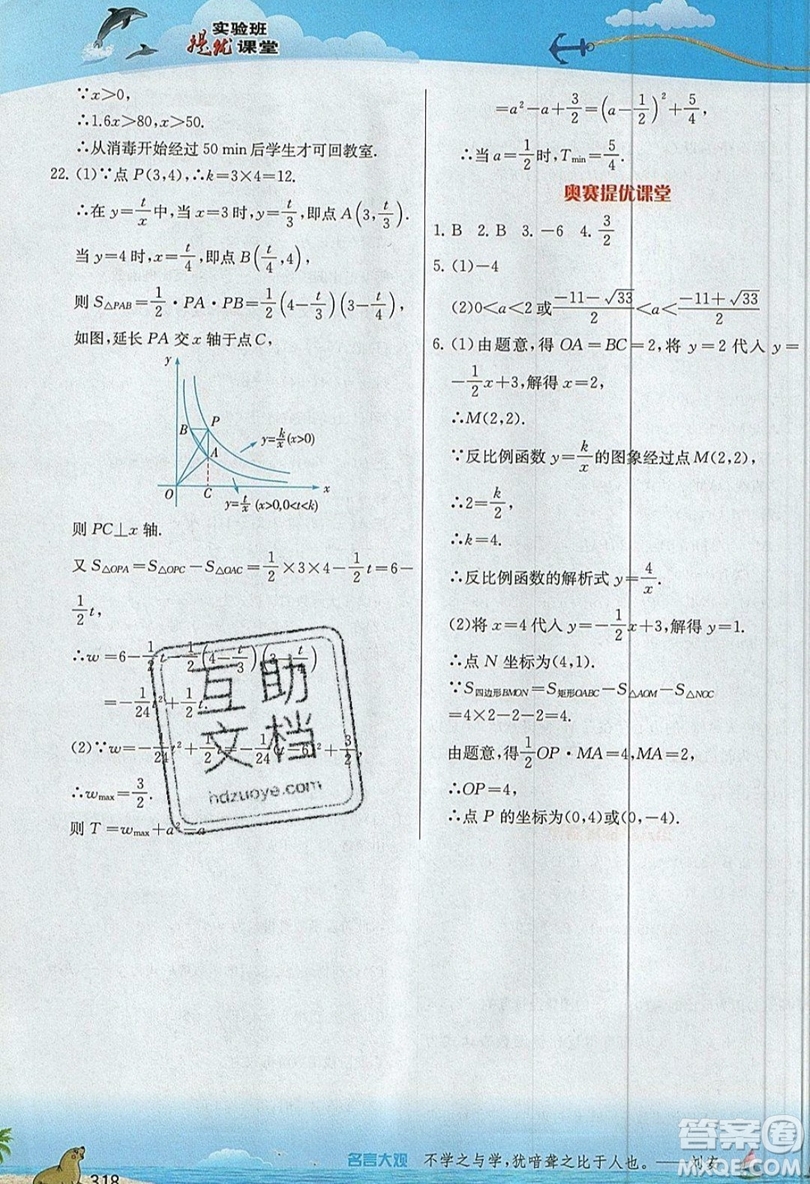 实验班
提优课堂
∵x>0,
∴1.6x>80,x>50.
∴从消毒开始经过 50 min 后学生才可回教室.
22. (1)∵点 P(3,4),∴k=3×4=12.
∴在 y=t/x 中,当 x=3 时,y=t/3,即点 A(3,t/3).
当 y=4 时,x=t/4,即点 B(t/4,4),
则 S△PAB=1/2·PA·PB=1/2(4-t/3)(3-t/4),
如图,延长 PA 交 x 轴于点 C,
y
B P
y=k/x(x>0)
A
O C x
y=t/x (x>0,0<t<k)
则 PC⊥x 轴.
又 S△OPA=S△OPC-S△OAC=1/2×3×4-1/2t=6-
1/2t,
∴w=6-1/2t-1/2(4-t/3)(3-t/4)
=-1/24t²+1/2t.
(2)∵w=-1/24t²+1/2t=-1/24(t-6)²+3/2,
∴wmax=3/2.
则 T=wmax+a²-a
=a²-a+3/2=(a-1/2)²+5/4,
∴当 a=1/2时,Tmin=5/4.
奥赛提优课堂
1. B 2. B 3. -6 4. 3/2
5. (1)-4
(2)0<a<2 或(-11-√33)/2<a<(-11+√33)/2
6. (1)由题意,得 OA=BC=2,将 y=2 代入 y=
-1/2x+3,解得 x=2,
∴M(2,2).
∵反比例函数 y=k/x的图象经过点 M(2,2),
∴2=k/2,
∴k=4.
∴反比例函数的解析式 y=4/x.
(2)将 x=4 代入 y=-1/2x+3,解得 y=1.
∴点 N 坐标为(4,1).
∵S四边形BMON=S矩形OABC-S△AOM-S△NOC
=4×2-2-2=4.
由题意,得1/2OP·MA=4,MA=2,
∴OP=4,
∴点 P 的坐标为(0,4)或(0,-4).
互助
文档
hdzuoye.com
名言大观 不学之与学,犹喑聋之比于人也。——刘安
318
答案圈
MXQE.COM